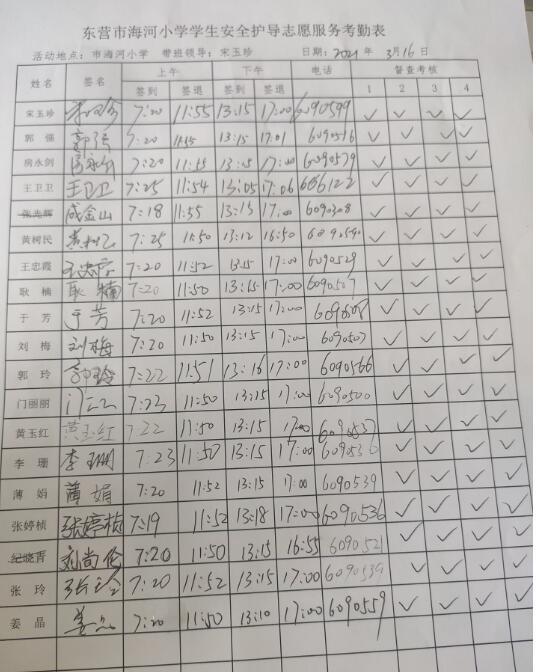 东营市海河小学学生安全护导志愿服务考勤表
活动地点：市海河小学 带班领导：宋玉珍 日期：2021年 3月16日
姓名 签名 上午 下午 电话 督查考核
签到 签退 签到 签退 1 2 3 4
宋玉珍 7:20 11:55 13:15 17:00 6090599 ✓ ✓ ✓ ✓
郭强 郭强 7:20 11:55 13:15 17:01 6090516 ✓ ✓ ✓ ✓
房永剑 房永剑 7:20 11:55 13:15 17:00 6090579 ✓ ✓ ✓ ✓
王卫卫 王卫卫 7:25 11:54 13:05 17:06 ✓ ✓ ✓ ✓
张光辉 成金山 7:18 11:55 13:15 17:00 ✓ ✓ ✓ ✓
黄柯民 7:25 11:50 13:12 16:50 ✓ ✓ ✓ ✓
王忠霞 7:20 11:52 13:15 17:00 6090529 ✓ ✓ ✓ ✓
耿楠 耿楠 7:20 11:50 13:15 17:00 6090507 ✓ ✓ ✓ ✓
于芳 于芳 7:20 11:52 13:15 17:00 ✓ ✓ ✓ ✓
刘梅 刘梅 7:20 11:50 13:15 17:00 6090507 ✓ ✓ ✓ ✓
郭玲 郭玲 7:22 11:51 13:16 17:00 6090566 ✓ ✓ ✓ ✓
门丽丽 7:23 11:50 13:15 17:00 6090500 ✓ ✓ ✓ ✓
黄玉红 黄玉红 7:22 11:50 13:15 17:00 6090537 ✓ ✓ ✓ ✓
李珊 李珊 7:23 11:50 13:15 17:00 6090536 ✓ ✓ ✓ ✓
薄娟 薄娟 7:20 11:52 13:15 17:00 6090539 ✓ ✓ ✓ ✓
张婷桢 张婷桢 7:19 11:52 13:18 17:00 6090536 ✓ ✓ ✓ ✓
纪晓菁 刘尚伦 7:20 11:50 13:15 16:55 6090521 ✓ ✓ ✓ ✓
张玲 张玲 7:20 11:52 13:15 17:00 6090539 ✓ ✓ ✓ ✓
姜晶 姜晶 7:20 11:50 13:10 17:00 6090559 ✓ ✓ ✓ ✓